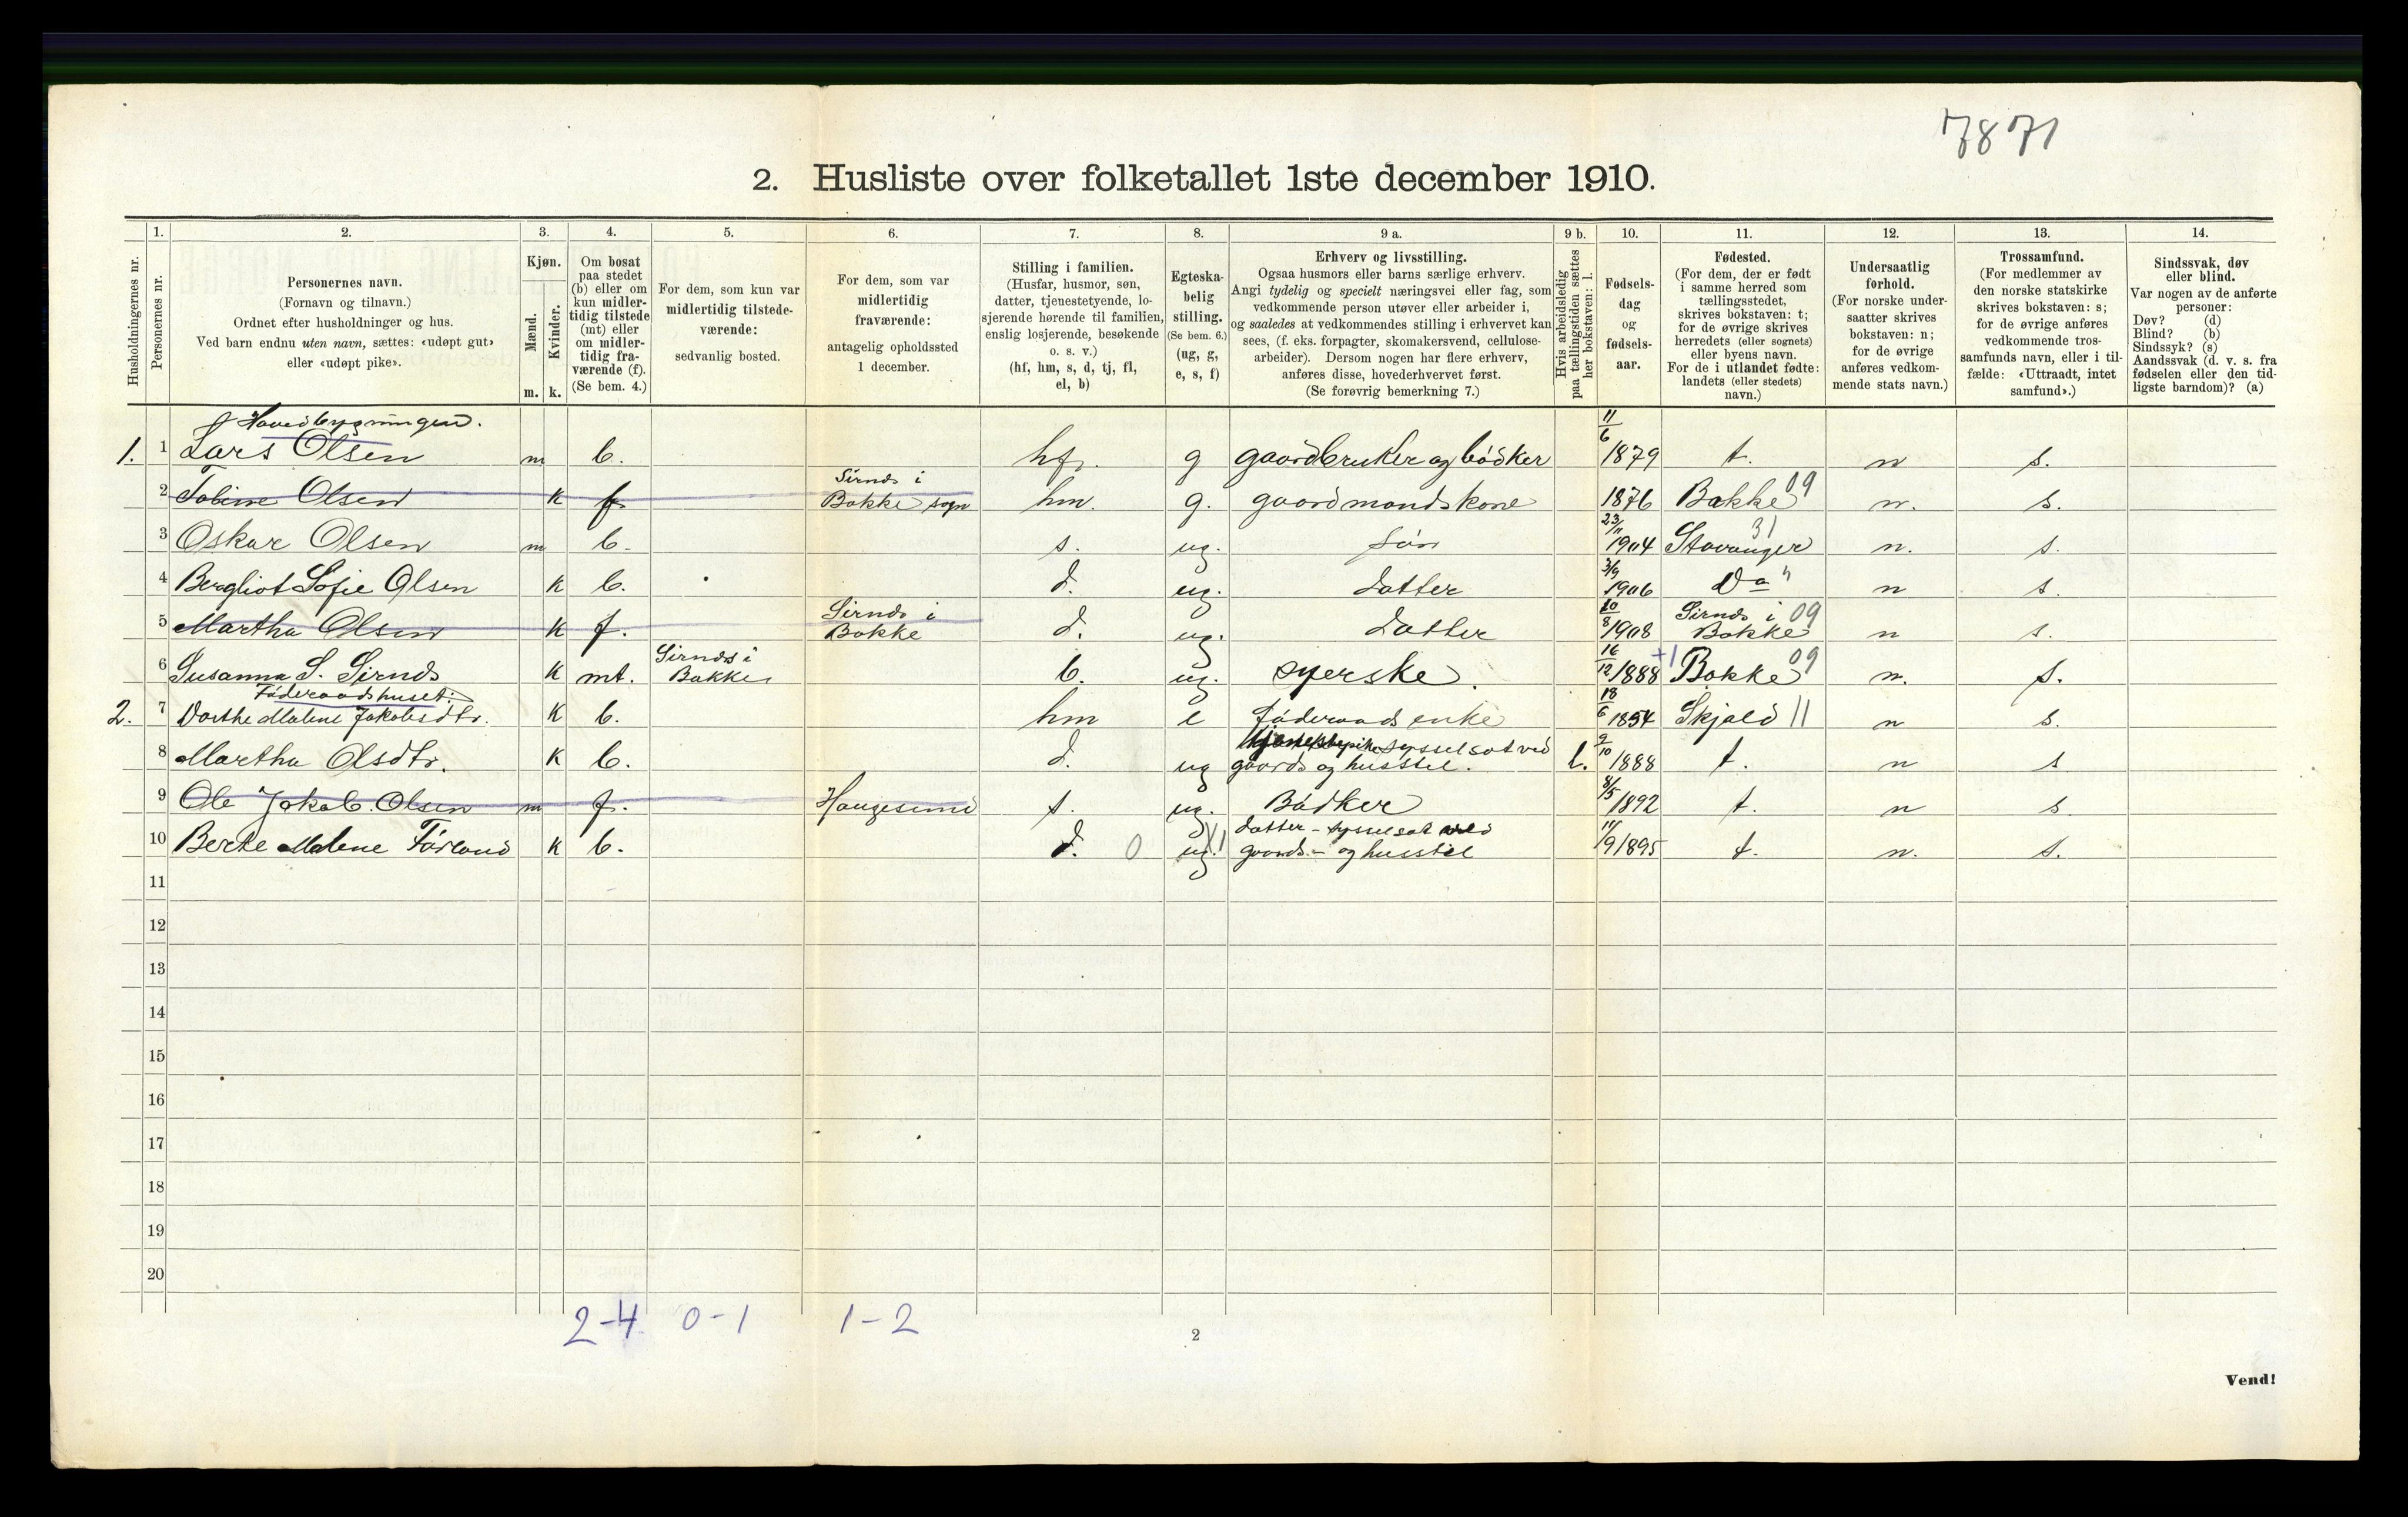 7871
2. Husliste over folketallet 1ste december 1910.
Husholdningernes nr.
1.
Personernes nr.
2.
Personernes navn.
(Fornavn og tilnavn.)
Ordnet efter husholdninger og hus.
Ved barn endnu uten navn, sættes: «udøpt gut»
eller «udøpt pike».
3.
Kjøn.
Mænd. Kvinder.
m. k.
4.
Om bosat
paa stedet
(b) eller om
kun midler-
tidig tilstede
(mt) eller
om midler-
tidig fra-
værende (f).
(Se bem. 4.)
5.
For dem, som kun var
midlertidig tilstede-
værende:
sedvanlig bosted.
6.
For dem, som var
midlertidig
fraværende:
antagelig opholdssted
1 december.
7.
Stilling i familien.
(Husfar, husmor, søn,
datter, tjenestetyende, lo-
sjerende hørende til familien,
enslig losjerende, besøkende
o. s. v.)
(hf, hm, s, d, tj, fl,
el, b)
8.
Egteska-
belig
stilling.
(Se bem. 6.)
(ug, g,
e, s, f)
9 a.
Erhverv og livsstilling.
Ogsaa husmors eller barns særlige erhverv.
Angi tydelig og specielt næringsvei eller fag, som
vedkommende person utøver eller arbeider i,
og saaledes at vedkommendes stilling i erhvervet kan
sees, (f. eks. forpagter, skomakersvend, cellulose-
arbeider). Dersom nogen har flere erhverv,
anføres disse, hovederhvervet først.
(Se forøvrig bemerkning 7.)
9 b.
Hvis arbeidsledig
paa tællingstiden sættes
her bokstaven: l.
10.
Fødsels-
dag
og
fødsels-
aar.
11.
Fødested.
(For dem, der er født
i samme herred som
tællingsstedet,
skrives bokstaven: t;
for de øvrige skrives
herredets (eller sognets)
eller byens navn.
For de i utlandet fødte:
landets (eller stedets)
navn.)
12.
Undersaatlig
forhold.
(For norske under-
saatter skrives
bokstaven: n;
for de øvrige
anføres vedkom-
mende stats navn.)
13.
Trossamfund.
(For medlemmer av
den norske statskirke
skrives bokstaven: s;
for de øvrige anføres
vedkommende tros-
samfunds navn, eller i til-
fælde: «Uttraadt, intet
samfund».)
14.
Sindssvak, døv
eller blind.
Var nogen av de anførte
personer:
Døv? (d)
Blind? (b)
Sindssyk? (s)
Aandssvak (d. v. s. fra
fødselen eller den tid-
ligste barndom)? (a)
Hovedbygningen.
1. 1 Lars Olsen m b. hf. g gaardbruker og bödker 11/6 1879 t. n s.
2 Tobine Olsen k f. Sirnds i Bakke sogn hm. g. gaardmandskone 1876 Bakke 09 n. s.
3 Oskar Olsen m b. s. ug. sön 23/11 1904 Stavanger 31 n. s.
4 Bergliot Sofie Olsen k b. d. ug. datter 3/9 1906 Do " n s.
5 Martha Olsen k f. Sirnds i Bakke d. ug. datter 10/8 1908 Sirnds i Bakke 09 n s.
6 Susanna S. Sirnds k mt. Sirnds i Bakke b. ug. syerske. 16/12 1888 +1 Bakke 09 n. s.
Föderaadshuset:
2. 7 Dorthe Malene Jakobsdtr. k b. hm e föderaads enke 18/6 1854 Skjold 11 n s.
8 Martha Olsdtr. k b. d. ug sysselsat ved gaards og husstel. l. 9/10 1888 t. n s
9 Ole Jakob Olsen m f. Haugesund s. ug. Bödker 8/5 1892 t. n s
10 Berte Malene Förland k b. d. 0 ug. datter - sysselsat ved gaards- og husstel 11/9 1895 t. n. s.
11
12
13
14
15
16
17
18
19
20
2-4 0-1 1-2
2
Vend!